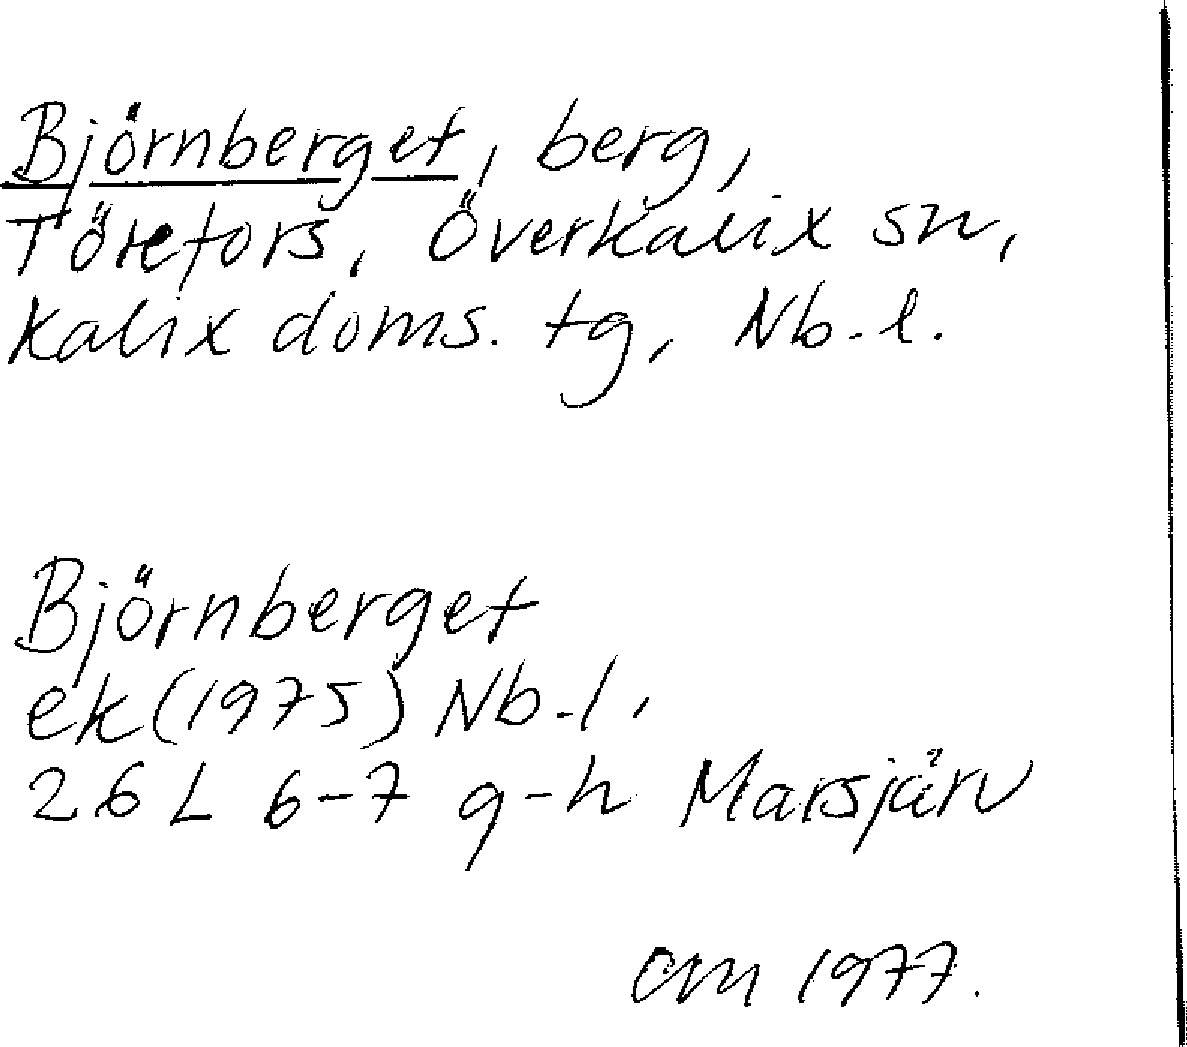 Björnberget, berg,
Törefors, Överkalix sn,
Kalix doms. tg, Nb.l.
Björnberget
ek (1975) Nb.l.
26 L 6-7 g-h Marsjärv
CM 1977.